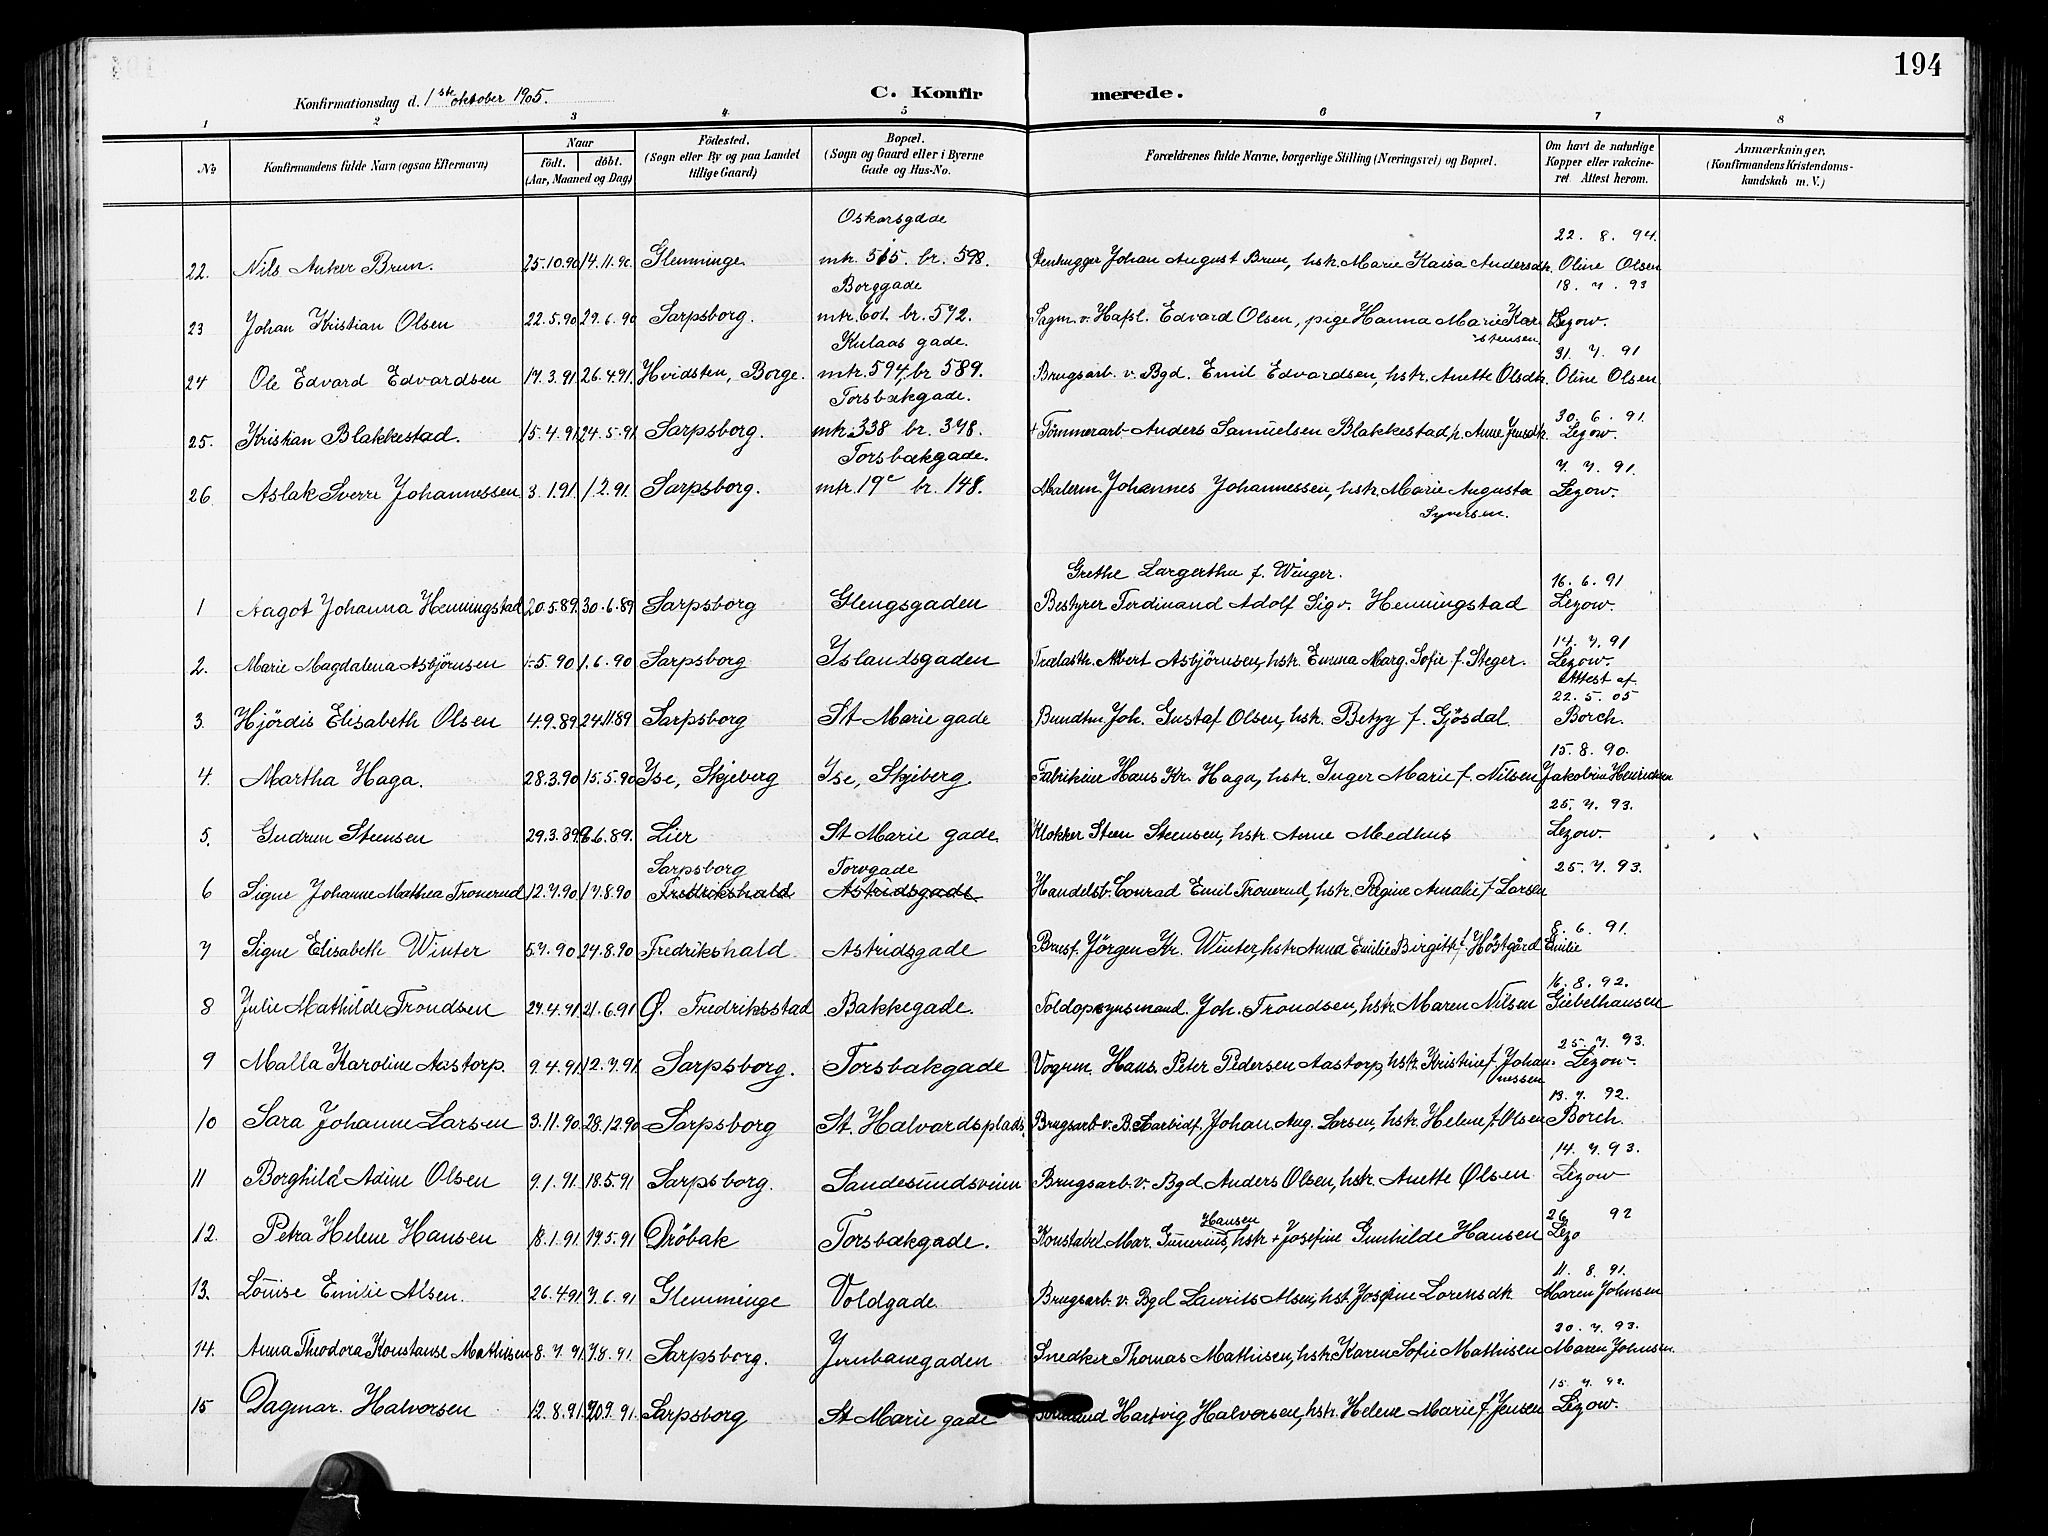 194
Konfirmationsdag d. 1ste oktober 1905.
C. Konfirmerede.
1 2 3 4 5 6 7 8
No
Konfirmandens fulde Navn (ogsaa Efternavn)
Naar
Födt. döbt.
(Aar, Maaned og Dag)
Födested.
(Sogn eller By og paa Landet
tillige Gaard)
Bopæl.
(Sogn og Gaard eller i Byerne
Gade og Hus-No.
Forældrenes fulde Navne, borgerlige Stilling (Næringsvei) og Bopæl.
Om havt de naturlige
Kopper eller vakcine-
ret Attest herom.
Anmærkninger.
(Konfirmandens Kristendoms-
kundskab m. V.)
Oskarsgade 22. 8. 94.
22. Nils Anker Brun. 25.10.90 14.11.90 Glemminge mtr. 515 br. 598. Stenhugger Johan August Brun, hstr. Marie Kaisa Andersdtr. Oline Olsen
Borggade 18. 7. 93
23 Johan Kristian Olsen 22.5.90 29.6.90 Sarpsborg. mtr. 601. br. 572. Sagm. v. Hafsl. Edvard Olsen, pige Hanna Marie Kar Lezow.
stensen
Kulaas gade. 31. 7. 91
24 Ole Edvard Edvardsen 17.3.91 26.4.91. Hvidsten, Borge. mtr. 594, br 589. Brugsarb. v. Bgd. Emil Edvardsen, hstr. Anette Olsdtr. Oline Olsen
Torsbækgade. 30. 6. 91.
25. Kristian Blakkestad. 15.4.91 24.5.91 Sarpsborg. mtr. 338 br. 348. + Tömmerarb. Anders Samuelsen Blakkestad, h. Anne Jensdtr. Lezow.
Torsbækgade. 7. 7. 91.
26. Aslak Sverre Johannessen 3.1.91. 1.2.91. Sarpsborg. mtr. 19c br. 148. Malerm. Johannes Johannessen, hstr. Marie Augusta Lezow.
Syversen.
Grethe Largertha f. Winger. 16. 6. 91
1 Aagot Johanna Henningstad 20.5.89. 30.6.89 Sarpsborg Glengsgaden Bestyrer Ferdinand Adolf Sigv. Henningstad Lezow.
14. 7. 91
2. Marie Magdalena Asbjörnsen 5.90 1.6.90 Sarpsborg Yslandsgaden Trælasth. Albert Asbjörnsen, hstr. Emma Marg. Sofie f. Steger. Lezow.
Attest af
22. 5. 05
3. Hjördis Elisabeth Olsen 4.9.89 24.11.89 Sarpsborg St Marie gade Bundtm. Joh. Gustaf Olsen, hstr. Betzy f. Gjösdal. Borch.
15. 8. 90.
4. Martha Haga. 28.3.90 15.5.90 Yse, Skjeberg Yse, Skjeberg Fabrikeier Hans Kr. Haga, hstr. Inger Marie f. Nilsen Jakobine Henriksen
25. 7. 93.
5. Gudrun Steensen 29.3.89 6.6.89. Lier St Marie gade Klokker Steen Steensen, hstr. Anne Medhus Lezow.
Sarpsborg Torvgade 25. 7. 93.
6 Signe Johanne Mathea Tronerud 12.7.90 17.8.90 Fredrikshald Astridsgade Handelsb. Conrad Emil Tronerud, hstr. Regine Amalie f. Larsen
8. 6. 91.
7 Signe Elisabeth Winter 5.7.90 24.8.90 Fredrikshald. Astridsgade Brusf. Jörgen Kr. Winter, hstr. Anna Emilie Birgitte f. Höstgård Emilie
16. 8. 92.
8 Julie Mathilde Trondsen 27.4.91 21.6.91 Ø. Fredriksstad Bakkegade. Toldopsynsmand. Joh. Trondsen, hstr. Maren Nilsen Giebelhausen
25. 7. 93.
9 Malla Karoline Aastorp. 9.4.91 12.7.91 Sarpsborg. Torsbakgade Vognm. Hans Peter Pedersen Aastorp, hstr. Kristine f. Johan- Lezow
nessen
13. 7. 92.
10 Sara Johanne Larsen 3.11.90 28.12.90 Sarpsborg St. Halvardsplads. Brugsarb. v. B. Karbidf. Johan Aug. Larsen, hstr. Helene f. Olsen Borch.
14. 7. 93.
11 Borghild Adine Olsen 9.1.91. 18.5.91 Sarpsborg. Sandesundsveien Brugsarb. v. Bgd. Anders Olsen, hstr. Anette Olsen Lezow
Hansen 26 92
12. Petra Helene Hansen 18.1.91. 19.5.91 Dröbak Torsbækgade. Konstabel Mar. Gunerius, hstr + Josefine Gunhilde Hansen Lezo
11. 8. 91.
13. Louise Emilie Alsen. 26.4.91 7.6.91 Glemminge Voldgade Brugsarb. v. Bgd Laurits Alsen, hst. Josefine Lorensdtr Maren Johnsen
30. 7. 93.
14. Anna Theodora Konstanse Mathisen 8.7.91. 7.8.91. Sarpsborg. Jernbanegaden Snedker Thomas Mathisen, hstr. Karen Sofie Mathisen Maren Johnsen
15. 7. 92.
15 Dagmar. Halvorsen 12.8.91. 20.9.91. Sarpsborg St Marie gade Hartvig Halvorsen, hstr. Helene Marie f. Jensen Lezow.